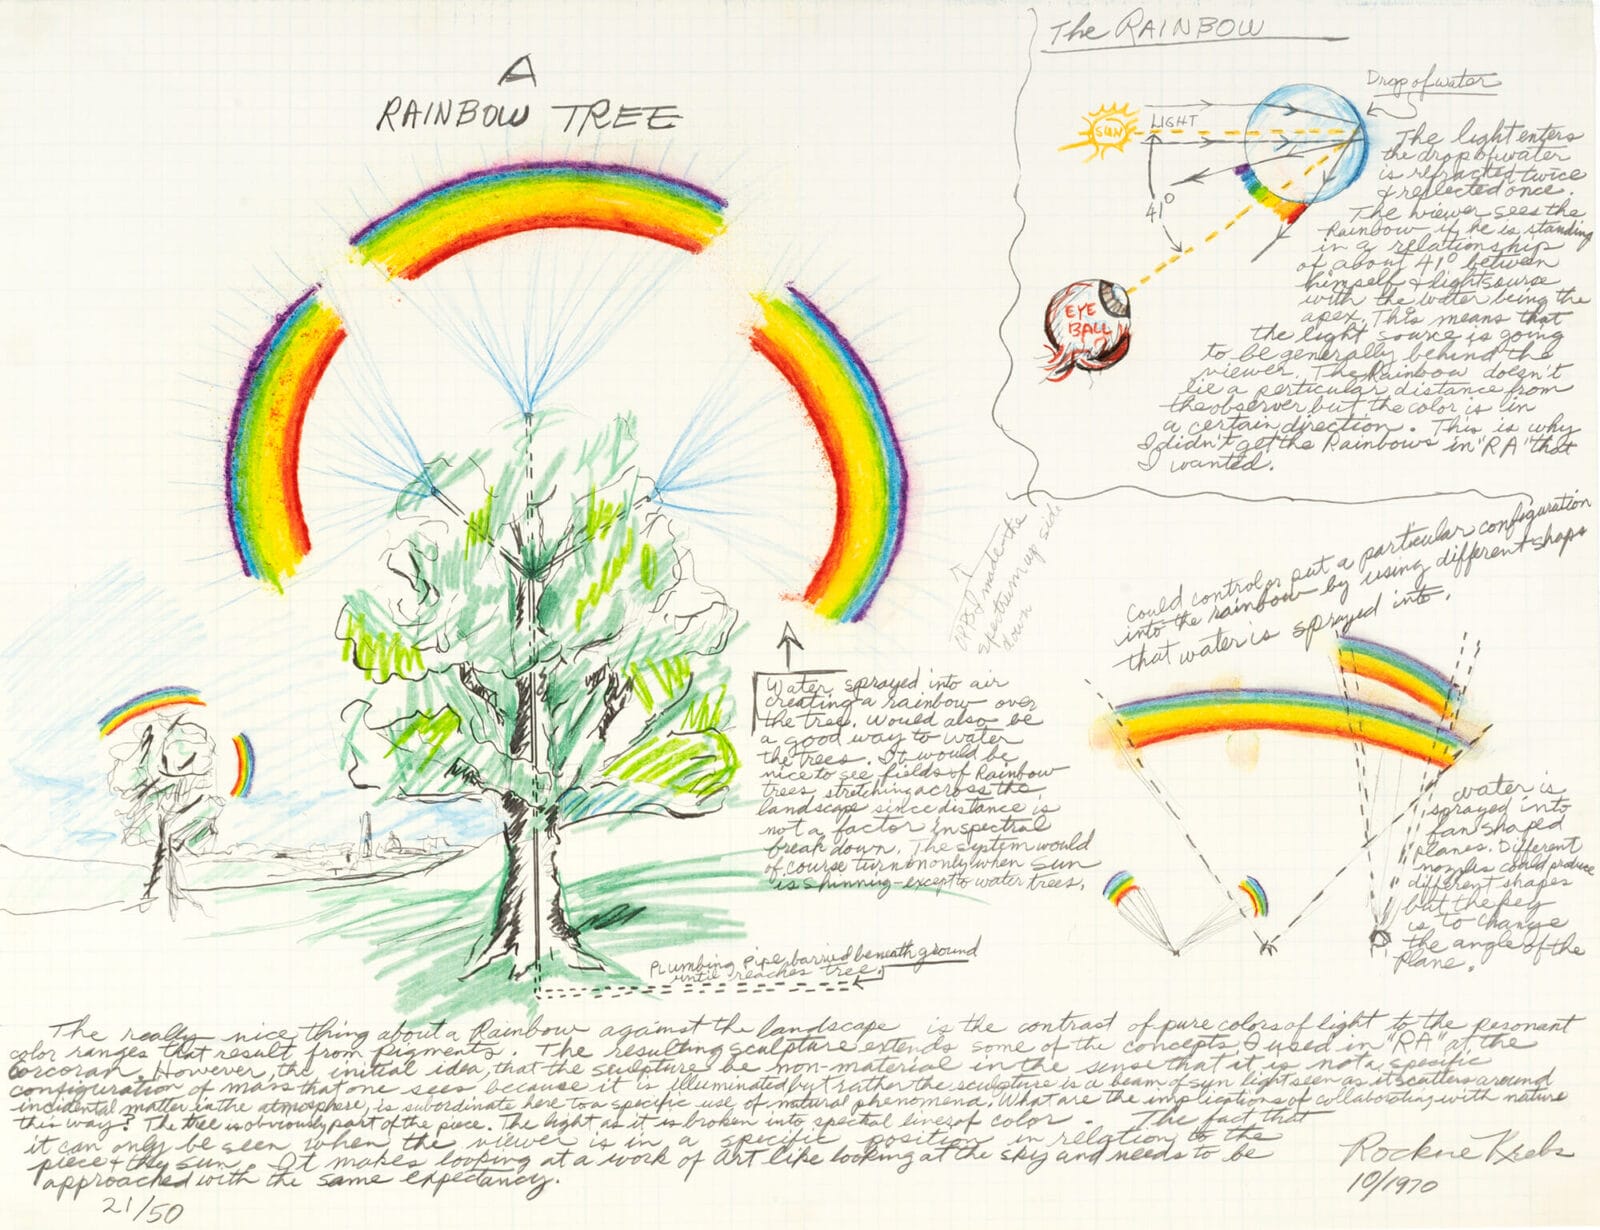 A
RAINBOW TREE
The RAINBOW
Drop of water
SUN
LIGHT
41°
EYE
BALL
The light enters
the drop of water
is refracted twice
& reflected once.
The viewer sees the
Rainbow if he is standing
in a relationship
of about 41° between
himself & light source
with the water being the
apex. This means that
the light source is going
to be generally behind the
viewer. The Rainbow doesn't
lie a perticular distance from
the observer but the color is in
a certain direction. This is why
I didn't get the Rainbows in "RA" that
I wanted.
I made the
spectrum up side
down
Could control or put a particular configuration
into the rainbow by using different shaps
that water is sprayed into.
Water sprayed into air
creating a rainbow over
the tree. Would also be
a good way to water
the trees. It would be
nice to see fields of Rainbow
trees stretching across the
landscape since distance is
not a factor in spectral
break down. The system would
of course turn on only when sun
is shinning - except to water trees.
water is
sprayed into
fan shaped
planes. Different
nozzles could produce
different shapes
but the key
is to change
the angle of the
Plane.
Plumbing pipe barried beneath ground
until reaches tree.
The really nice thing about a Rainbow against the landscape is the contrast of pure colors of light to the resonant
color ranges that result from pigments. The resulting sculpture extends some of the concepts I used in "RA" at the
Corcoran. However, the initial idea, that the sculpture be non-material in the sense that it is not a specific
configuration of mass that one sees because it is illuminated but rather the sculpture is a beam of sun light seen as it scatters around
incidental matter in the atmosphere, is subordinate here to a specific use of natural phenomena. What are the implications of collaborating with nature
this way? The tree is obviously part of the piece. The light as it is broken into spectral lines of color. The fact that
it can only be seen when the viewer is in a specific position in relation to the
piece & the sun. It makes looking at a work of art like looking at the sky and needs to be
approached with the same expectancy.
21/50
Rockne Krebs
10/1970